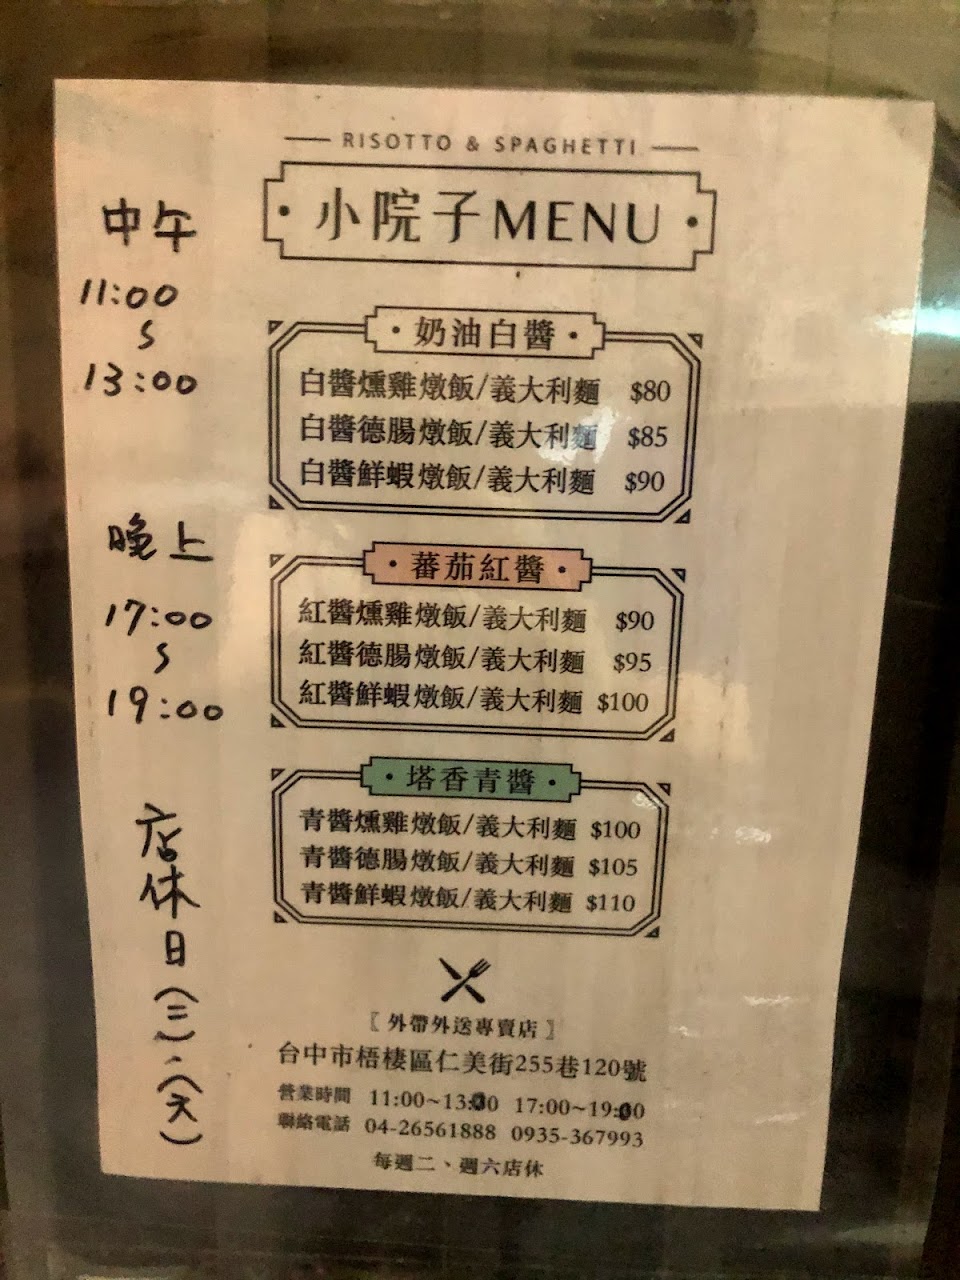 RISOTTO & SPAGHETTI
小院子MENU
中午
11:00
~
13:00
奶油白醬
白醬燻雞燉飯/義大利麵 $80
白醬德腸燉飯/義大利麵 $85
白醬鮮蝦燉飯/義大利麵 $90
晚上
17:00
~
19:00
蕃茄紅醬
紅醬燻雞燉飯/義大利麵 $90
紅醬德腸燉飯/義大利麵 $95
紅醬鮮蝦燉飯/義大利麵 $100
塔香青醬
青醬燻雞燉飯/義大利麵 $100
青醬德腸燉飯/義大利麵 $105
青醬鮮蝦燉飯/義大利麵 $110
店休日(三)、(天)
〖外帶外送專賣店〗
台中市梧棲區仁美街255巷120號
營業時間 11:00~13:00 17:00~19:00
聯絡電話 04-26561888 0935-367993
每週二、週六店休